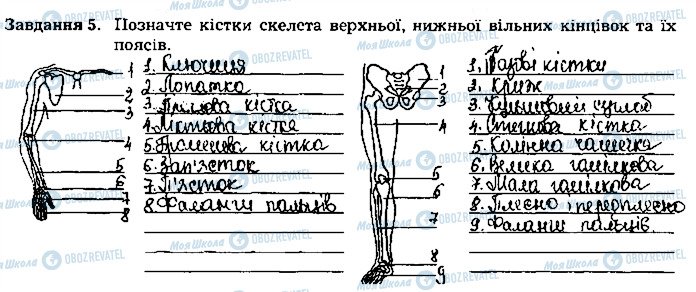 Завдання 5. Позначте кістки скелета верхньої, нижньої вільних кінцівок та їх
поясів.
1. Ключиця
2 Лопатка
3. Плечова кістка
4. Ліктьова кістка
5. Променева кістка
6. Зап'ясток
7. П'ясток
8. Фаланги пальців
1
2
3
4
5
6
7
8
1. Тазові кістки
2. Криж
3. Кульшовий суглоб
4. Стегнова кістка
5. Колінна чашечка
6. Велика гомілкова
7. Мала гомілкова
8. Плесно і передплесно
9. Фаланги пальців.
1
2
3
4
5
6
8
9
Моя Школа OBOZREVATEL